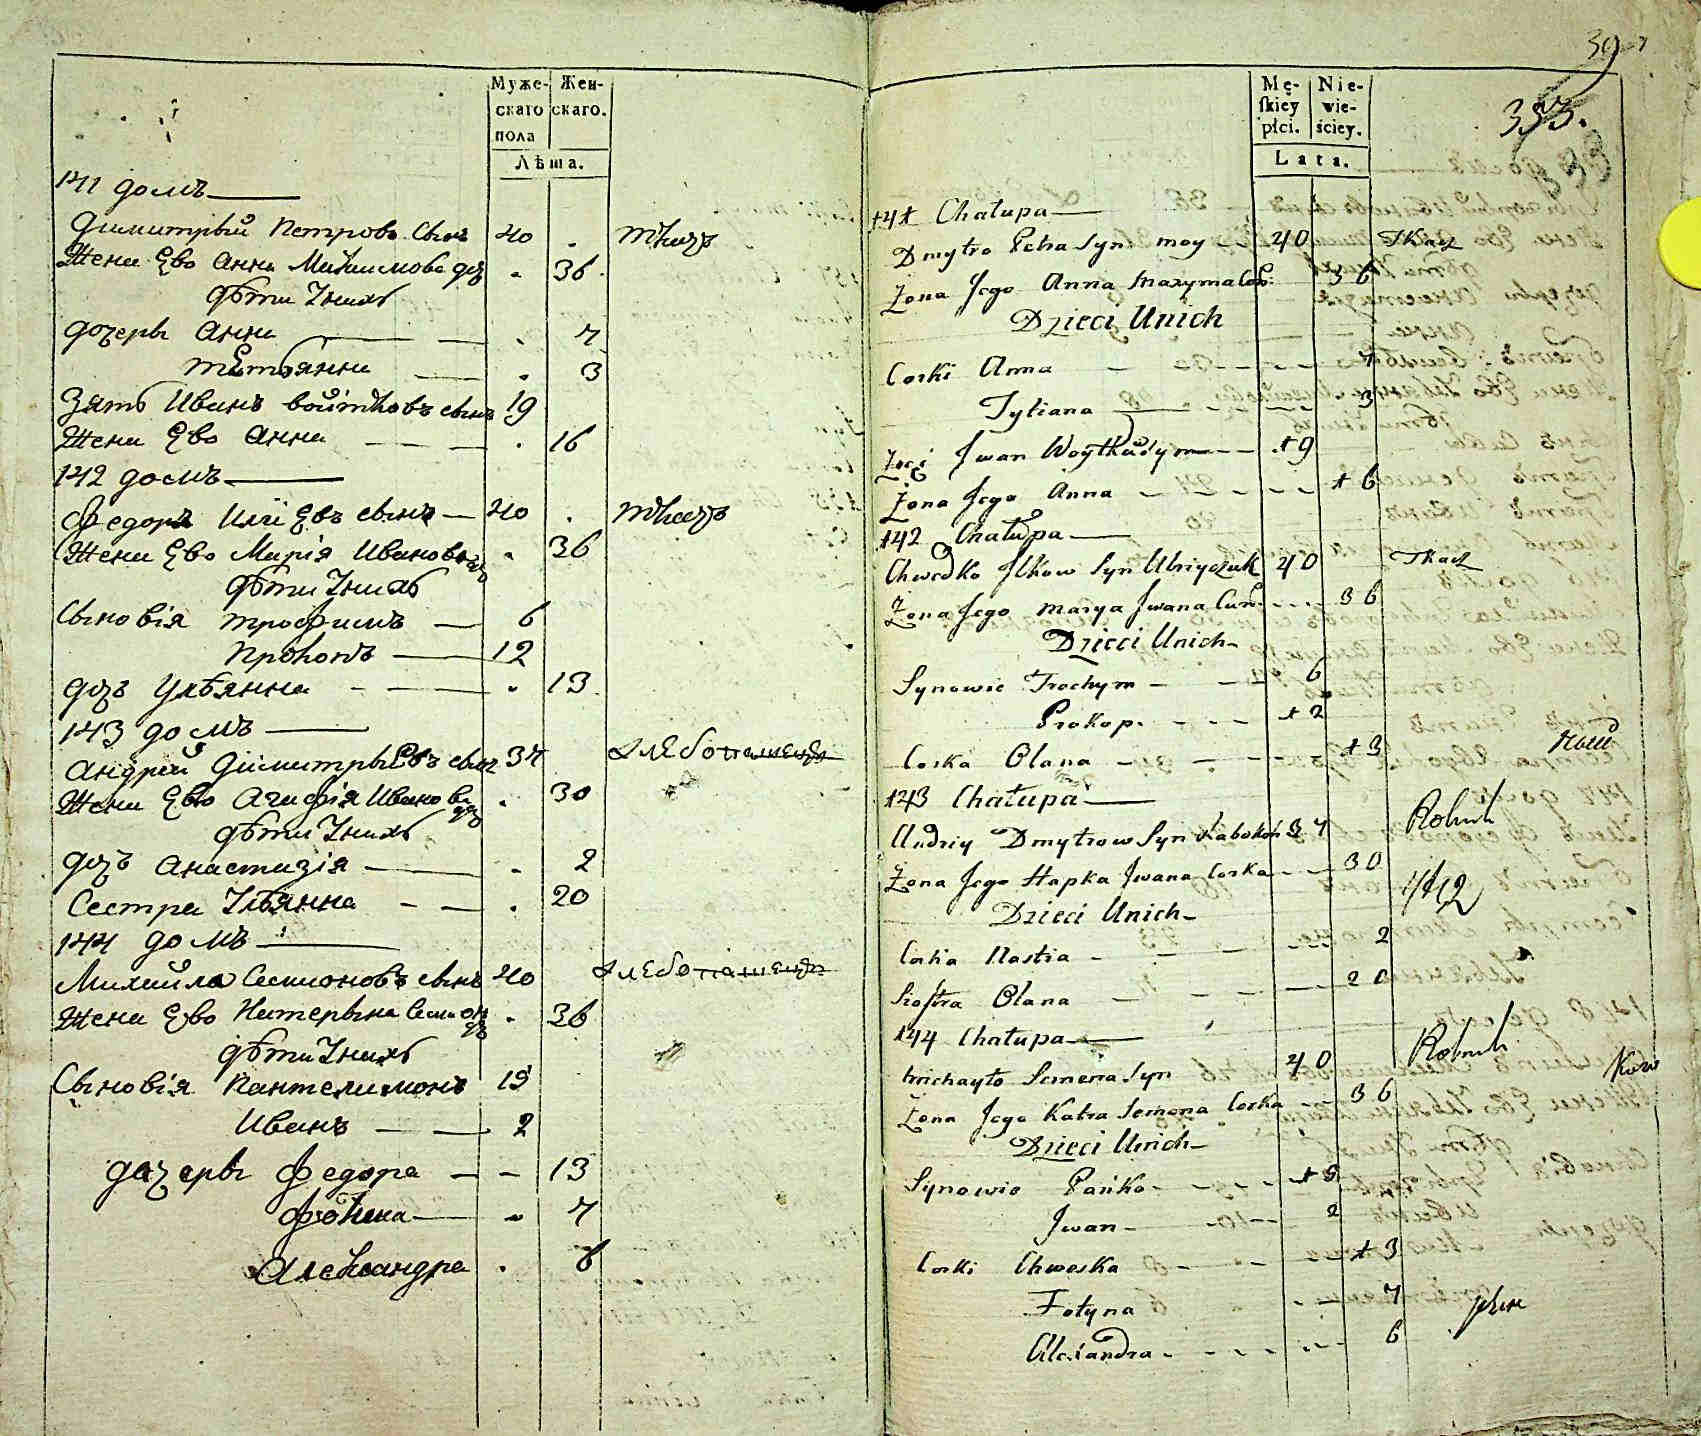 Муже-
скаго
пола
Жен-
скаго.
Лѣта.
141 домъ
Димитрый Петровъ сынъ 40 . ткачъ
Жена Ево Анна Маѯимова доч . 36
дѣти Унихъ
дочеры Анна . 7
тетьянна . 3
Зять Иванъ войтковъ сынъ 19
Жена Ево Анна . 16
142 домъ
Федоръ Иліевъ сынъ 40 . ткачъ
Жена Ево Марія Иванова доч . 36
дѣти Унихъ
Сыновія трофимъ 6
Прокопъ 12
доч Ульянна . 13
143 домъ
Андрей Димитрыевъ сынъ 37 хлебопашецъ
Жена Ево Агафія Иванова доч . 30
дѣти Унихъ
доч Анастазія . 2
Сестра Ульянна . 20
144 домъ
Михайла Семионовъ сынъ 40 хлебопашецъ
Жена Ево Катерына Семион доч . 36
дѣти Унихъ
Сыновія Пантелимонъ 19
Иванъ 2
дочеры Федора 13
Фотина 7
Александра . 6
39
353.
393
Mę-
skiey
płci.
Nie-
wie-
ściey.
Lata.
141 Chałupa
Dmytro Petra Syn 40 Tkacz
Żona Jego Anna Maxyma Cor: 36
Dzieci Unich
Corki Anna 7
Tytiana 3
Zięć Iwan Woytków Syn 19
Żona Jego Anna 16
142 Chałupa
Chwedko Ilkow Syn 40 Tkacz
Żona Jego Marya Iwana Cur. 36
Dzieci Unich
Synowie Trochym 6
Prokop. 12
Corka Olana 13
143 Chałupa
Andriy Dmytrow Syn 37 Rolnik
Żona Jego Hapka Iwana Corka 30
Dzieci Unich
Corka Nastia 2
Siostra Olana 20
144 Chałupa
Michayło Semena Syn 40 Rolnik
Żona Jego Katra Semena Corka 36
Dzieci Unich
Synowie Pańko 19
Iwan 2
Corki Chweska 13
Fotyna 7
Alexandra 6